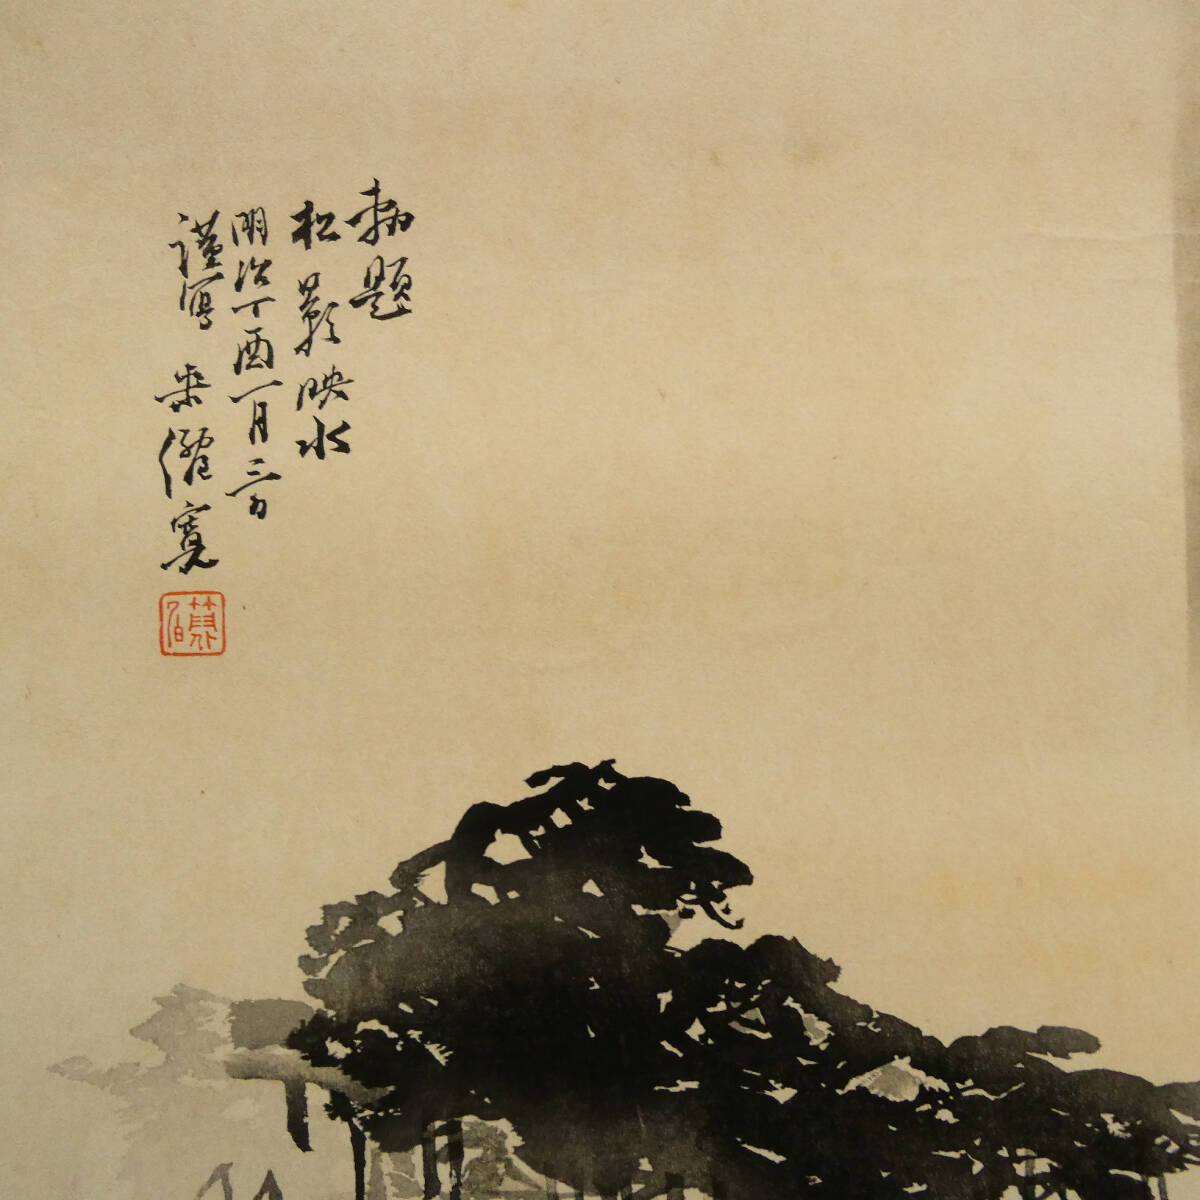 勅題
松影映水
明治丁酉一月三日
謹寫 米僊寛